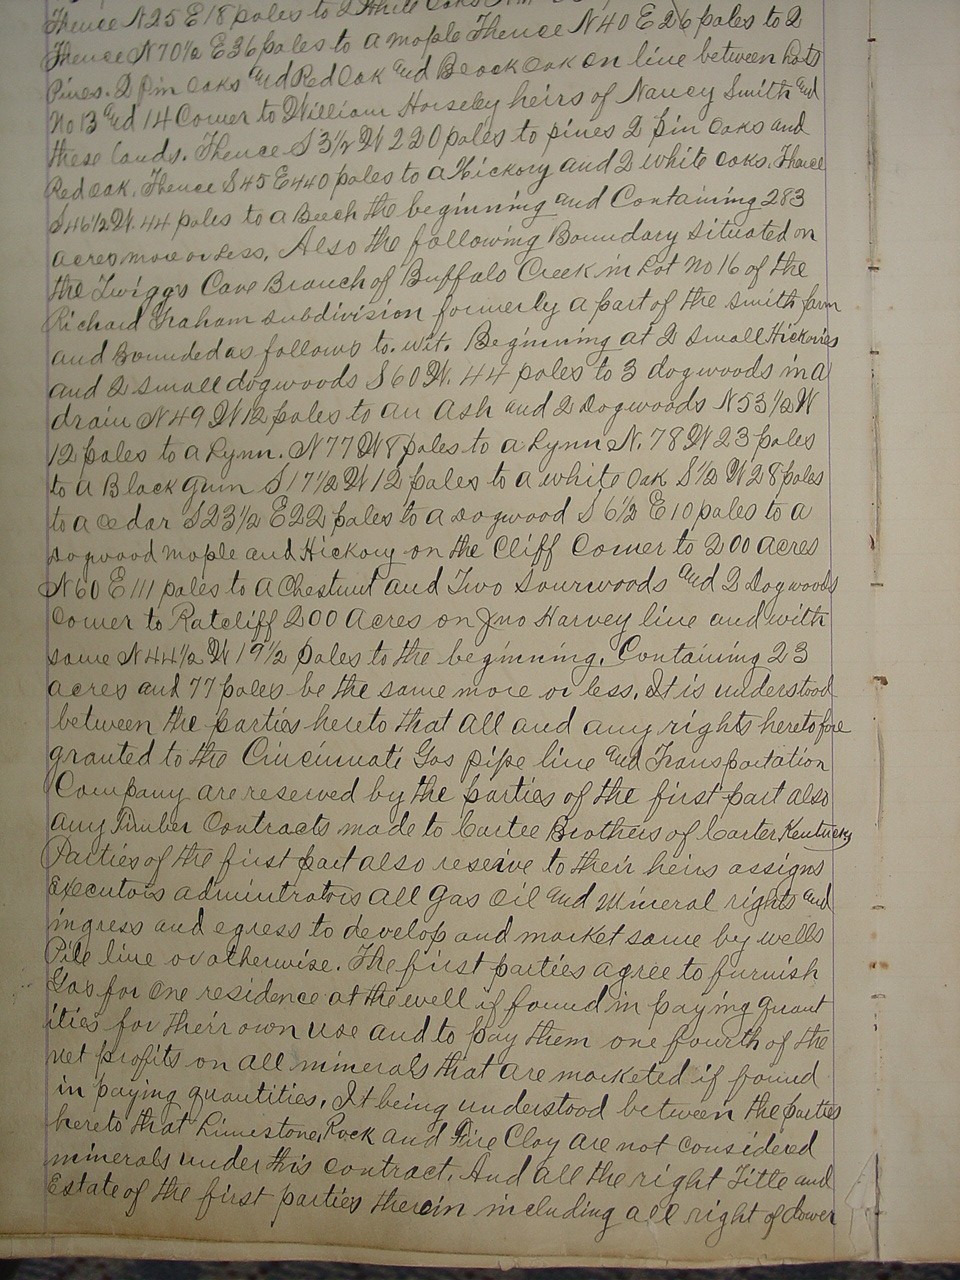 Thence N25 E18 poles to 2 White Oaks
Thence N70½ E36 poles to a maple Thence N40 E26 poles to 2
Pines. 2 Pin Oaks and Red Oak and Black Oak on line between Lots
No 13 and 14 Corner to William Horseley heirs of Nancy Smith and
these lands. Thence S3½ W 220 poles to pines 2 pin Oaks and
Red oak. Thence S45 E440 poles to a Hickory and 2 white oaks. Thence
S46½ W. 44 poles to a Beech the beginning and Containing 283
acres more or less. Also the following Boundary situated on
the Twiggs Cave Branch of Buffalo Creek in Lot No 16 of the
Richard Graham subdivision formerly a part of the smith farm
and Bounded as follows to. wit. Beginning at 2 small Hickories
and 2 small dogwoods S60 W. 44 poles to 3 dogwoods in a
drain N49 W12 poles to an Ash and 2 Dogwoods N53½ W
12 poles to a Lynn. N77 W8 poles to a Lynn N. 78 W 23 poles
to a Black gum S17½ W12 poles to a white Oak S½ W28 poles
to a cedar S23½ E22 poles to a Dogwood S6½ E10 poles to a
Dogwood maple and Hickory on the Cliff Corner to 200 acres
N60 E111 poles to a Chestnut and Two Sourwoods and 2 Dogwoods
Corner to Ratcliff 200 Acres on Jno Harvey line and with
same N44½ W 19½ poles to the beginning. Containing 23
acres and 77 poles be the same more or less. It is understood
between the parties hereto that all and any rights heretofore
granted to the Cincinnati Gas pipe line and Transportation
Company are reserved by the parties of the first part also
any Timber Contracts made to Cartee Brothers of Carter, Kentucky
Parties of the first part also reserve to their heirs assigns
executors admintrators all Gas Oil and Mineral rights and
ingress and egress to develop and market same by wells
Pile line or otherwise. The first parties agree to furnish
Gas for one residence at the well if found in paying quant
ities for their own use and to pay them one fourth of the
net profits on all minerals that are marketed if found
in paying quantities. It being understood between the parties
hereto that Limestone, Rock and Fire Clay are not considered
minerals under this contract. And all the right Title and
Estate of the first parties therein including all right of dower